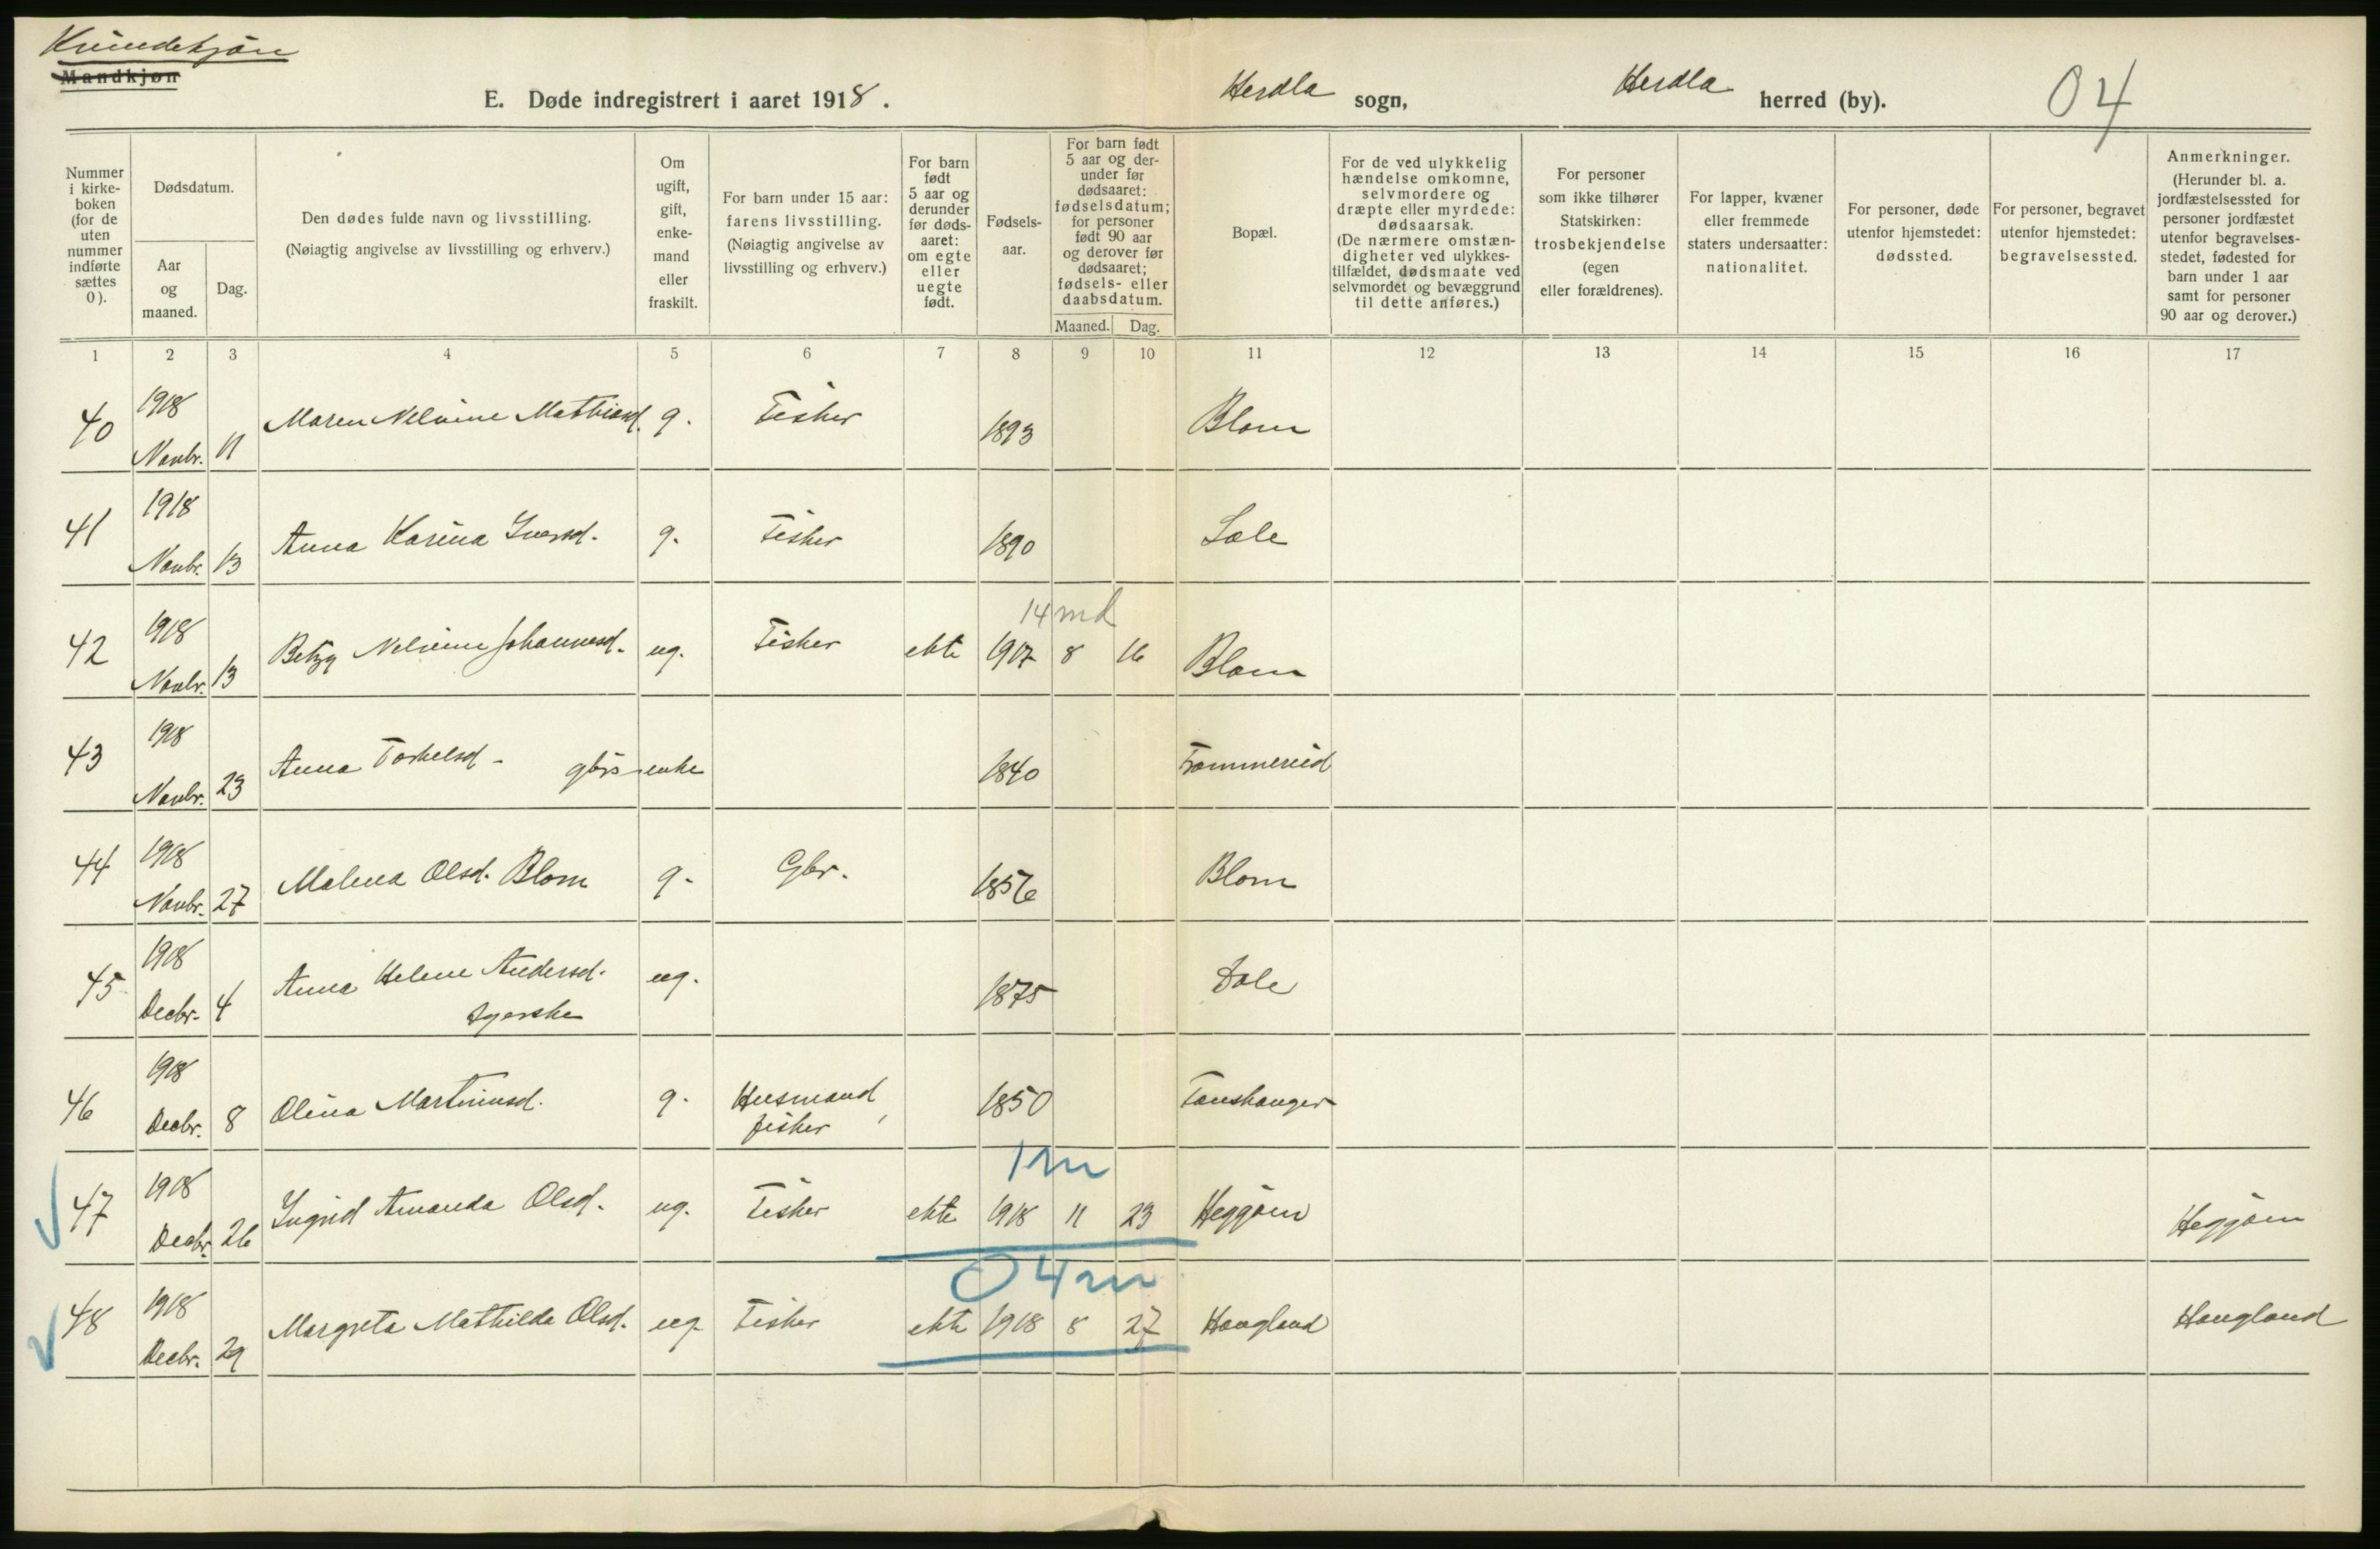 Kvindekjøn
Mandkjøn
E. Døde indregistrert i aaret 1918.
Herdla sogn,
Herdla herred (by).
04
Nummer i kirke-boken (for de uten nummer indførte sættes 0).
Dødsdatum.
Aar og maaned.
Dag.
Den dødes fulde navn og livsstilling.
(Nøiagtig angivelse av livsstilling og erhverv.)
Om ugift, gift, enke-mand eller fraskilt.
For barn under 15 aar: farens livsstilling. (Nøiagtig angivelse av livsstilling og erhverv.)
For barn født 5 aar og derunder før døds-aaret: om egte eller uegte født.
Fødsels-aar.
For barn født 5 aar og der-under før dødsaaret: fødselsdatum; for personer født 90 aar og derover før dødsaaret; fødsels- eller daabsdatum.
Maaned.
Dag.
Bopæl.
For de ved ulykkelig hændelse omkomne, selvmordere og dræpte eller myrdede: dødsaarsak. (De nærmere omstæn-digheter ved ulykkes-tilfældet, dødsmaate ved selvmordet og bevæggrund til dette anføres.)
For personer som ikke tilhører Statskirken: trosbekjendelse (egen eller forældrenes).
For lapper, kvæner eller fremmede staters undersaatter: nationalitet.
For personer, døde utenfor hjemstedet: dødssted.
For personer, begravet utenfor hjemstedet: begravelsessted.
Anmerkninger. (Herunder bl. a. jordfæstelsessted for personer jordfæstet utenfor begravelses-stedet, fødested for barn under 1 aar samt for personer 90 aar og derover.)
1 2 3 4 5 6 7 8 9 10 11 12 13 14 15 16 17
40 1918 Novbr. 11 Maren Nelvine Mathiasd. g. Fisker 1893 Blom
41 1918 Novbr. 13 Anna Karina Iversd. g. Fisker 1890 Sæle
14 md
42 1918 Novbr. 13 Betzy Nelvine Johannesd. ug. Fisker ekte 1917 8 16 Blom
43 1918 Novbr. 23 Anna Torkelsd - gbrs enke 1840 Tommereid
44 1918 Novbr. 27 Malena Olsd. Blom g. Gbr. 1856 Blom
45 1918 Decbr. 4 Anna Helene Andersd. syerske ug. 1875 Dale
46 1918 Decbr. 8 Olina Martinusd. g. Husmand, fisker 1850 Toushanger
1 m
47 1918 Decbr. 26 Ingrid Amanda Olsd. ug. Fisker ekte 1918 11 23 Heggøen Heggøen
04 m
48 1918 Decbr. 29 Margreta Mathilde Olsd. ug. Fisker ekte 1918 8 27 Hougland Hougland